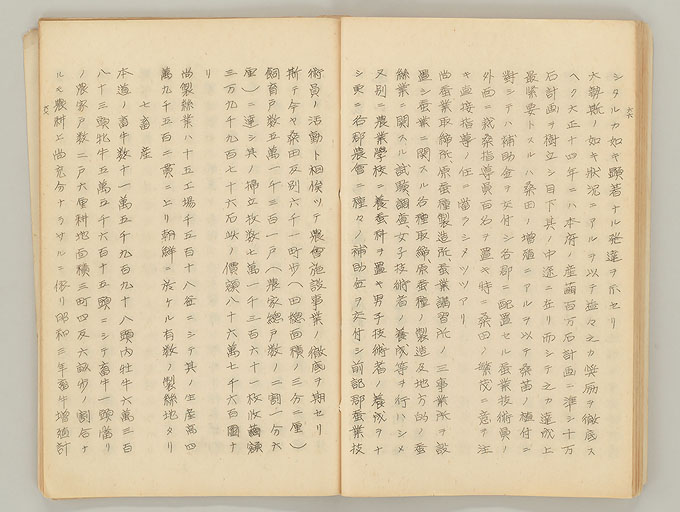 シタルカ如キ顕著ナル発達ヲ示セリ
大勢斯ノ如キ状況ニアルヲ以テ益々之カ奨励ヲ徹底ス
ヘク大正十四年ニハ本府ノ産繭百万石計画ニ準シ十万
石計画ヲ樹立シ目下其ノ中途ニ在リ而シテ之カ達成上
最緊要トスルハ桑田ノ増殖ニアルヲ以テ桑苗ノ植付ニ
対シテハ補助金ヲ交付シ各郡ニ配置セル蚕業技術員ノ
外面ニ栽桑指導員百名ヲ置キ特ニ桑田ノ繁茂ニ意ヲ注
キ直接指導ノ任ニ当ラシメツツアリ
尚蚕業取締所、原蚕種製造所、蚕業講習所ノ三事業所ヲ設
置シ蚕業ニ関スル各種取締、原蚕種ノ製造及地方的ノ蚕
絲業ニ関スル試験、調査、女子技術者ノ養成等ヲ行ハシメ
又別ニ農業学校ニ養蚕科ヲ置キ男子技術者ノ養成ヲナ
シ更ニ各郡農会ニ種々ノ補助金ヲ交付シ前記郡蚕業技
術員ノ活動ト相俟ツテ農会施設事業ノ徹底ヲ期セリ
斯テ今ヤ桑田反別六千一町歩（田惣面積ノ三分二厘）
飼育戸数五萬一千三百一戸（農家總戸数ノ二割一分六
厘）ニ達シ其ノ掃立枚数七萬一千三百六十一枚收繭額
三万九千九百七十六石此ノ價額八十六萬七千六百圓ナ
リ
尚製絲業ハ十五工場千五百十八釜ニシテ其ノ生産高四
萬九千五百二貫ニ上リ朝鮮ニ於ケル有数ノ製絲地タリ
七 畜産
本道ノ畜牛数十一萬五千九百九十八頭内牡牛六萬三百
八十三頭牝牛五萬五千六百十五頭ニシテ畜牛一頭當リ
ノ農家戸数二戸六里耕地面積三町四反六畝歩ノ割合ナ
ルモ農耕上尚充分ナラサルニ依リ昭和三年畜牛増殖計